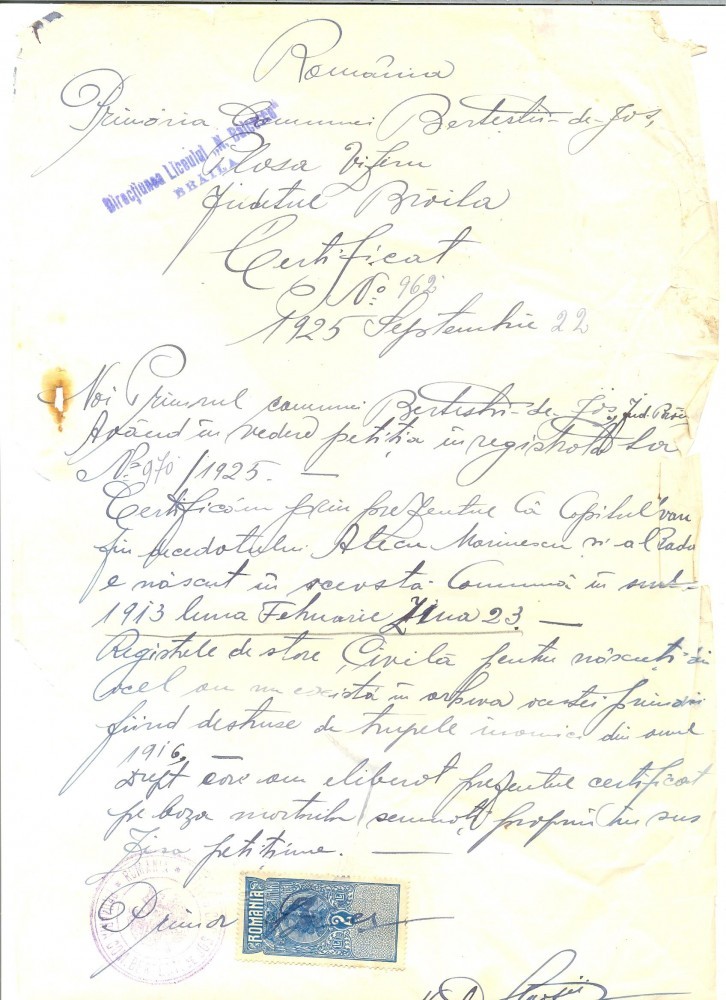 România
Primăria Comunei Bertestii-de-Jos,
Direcţiunea Liceului „N. Bălcescu"
BRĂILA
Plasa Viziru
Judetul Brăila
Certificat
No. 962
1925 Septembrie 22
Noi Primarul comunei Bertestii-de-Jos, Jud. Brăila
Având în vedere petiția înregistrată la
No 970/1925. —
Certificăm prin prezentul că Copilul Ivan
fiu Alecu Marinescu și al Rada
e născut în aceostă Comună în
1913 luna Februarie Ziua 23. —
Registrele de stare Civilă pentru născuți din
acel an nu există în arhiva acestei primării
fiind distruse de trupele inamice din anul
1916,
Drept care am eliberat prezentul certificat
pe baza martorilor semnați pe sus
zisa petițiune. —
ROMANIA
Primar
ROMANIA 2